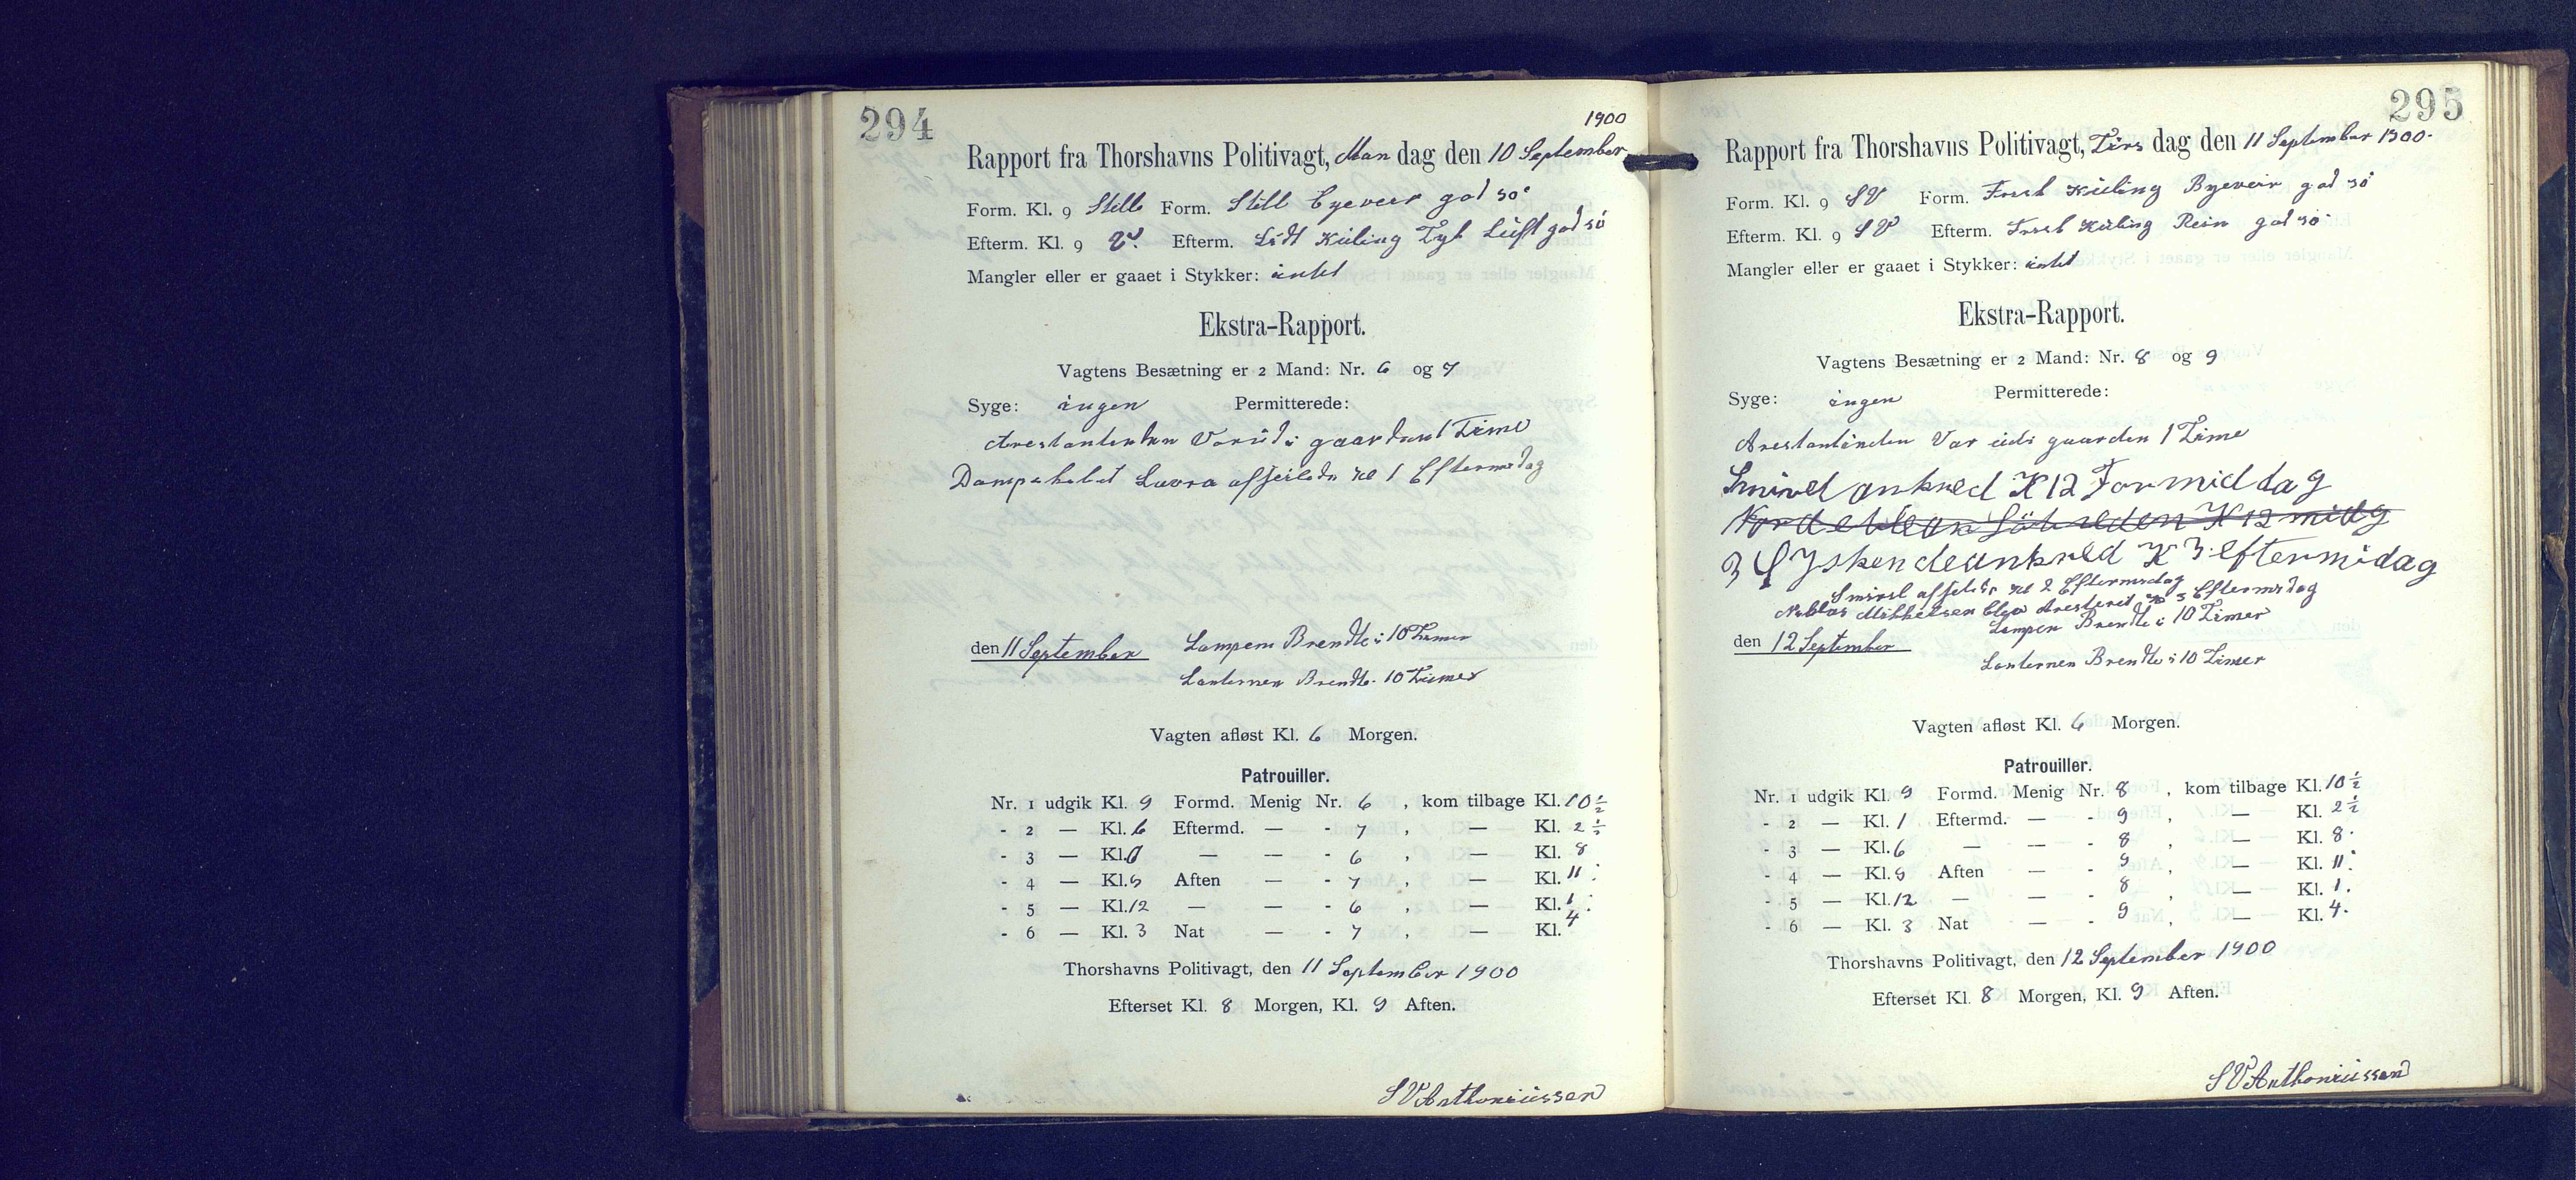 294
1900
Rapport fra Thorshavns Politivagt, Man dag den 10 September
Form. Kl. 9 Stille Form. Still Byeveir god sö
Efterm. Kl. 9 V. Efterm. Lidt Küling Tyk Lüft god sö
Mangler eller er gaaet i Stykker: intet
Ekstra-Rapport.
Vagtens Besætning er 2 Mand: Nr. 6 og 7
Syge: ingen Permitterede:
Arestantenden Var üd i gaarden 1 Time
Dampskibet Laura afseilede Kl 1 Eftermedag
den 11 September Lampen Brendte i 10 Timer
Lanternen Brendte 10 Timer
Vagten afløst Kl. 6 Morgen.
Patrouiller.
Nr. 1 udgik Kl. 9 Formd. Menig Nr. 6 , kom tilbage Kl. 10 ½
- 2 — Kl. 6 Eftermd. — - 7 , — Kl. 2 ½
- 3 — Kl. — — - 6 , — Kl. 8
- 4 — Kl. 9 Aften — - 7 , — Kl. 11
- 5 — Kl. 12 — — - 6 , — Kl. 1
- 6 — Kl. 3 Nat — - 7 , — Kl. 4
Thorshavns Politivagt, den 11 September 1900
Efterset Kl. 8 Morgen, Kl. 9 Aften.
S V Anthoniüssen
295
Rapport fra Thorshavns Politivagt, Tirs dag den 11 September 1900.
Form. Kl. 9 SV Form. Frisk Küling Byeveir god sö
Efterm. Kl. 9 SV Efterm. Frisk Küling Rein god sö
Mangler eller er gaaet i Stykker: intet
Ekstra-Rapport.
Vagtens Besætning er 2 Mand: Nr. 8 og 9
Syge: ingen Permitterede:
Arestantinden Var üdi gaarden 1 Time
Smiril ankred K 12 Formiddag
K 12 midg
3 Syskende ankred K 3 eftermidag
Smiril afseilede Kl 2 Eftermedag
Mikkelsen blev Aresteret Kl 5 Eftermedag
Lampen Brendte i 10 Timer
den 12 September
Lanternen Brendte i 10 Timer
Vagten afløst Kl. 6 Morgen.
Patrouiller.
Nr. 1 udgik Kl. 9 Formd. Menig Nr. 8 , kom tilbage Kl. 10 ½
- 2 — Kl. 1 Eftermd. — - 9 , — Kl. 2 ½
- 3 — Kl. 6 — — - 8 , — Kl. 8.
- 4 — Kl. 9 Aften — - 9 , — Kl. 11.
- 5 — Kl. 12 — — - 8 , — Kl. 1.
- 6 — Kl. 3 Nat — - 9 , — Kl. 4.
Thorshavns Politivagt, den 12 September 1900
Efterset Kl. 8 Morgen, Kl. 9 Aften.
S V Anthoniüssen